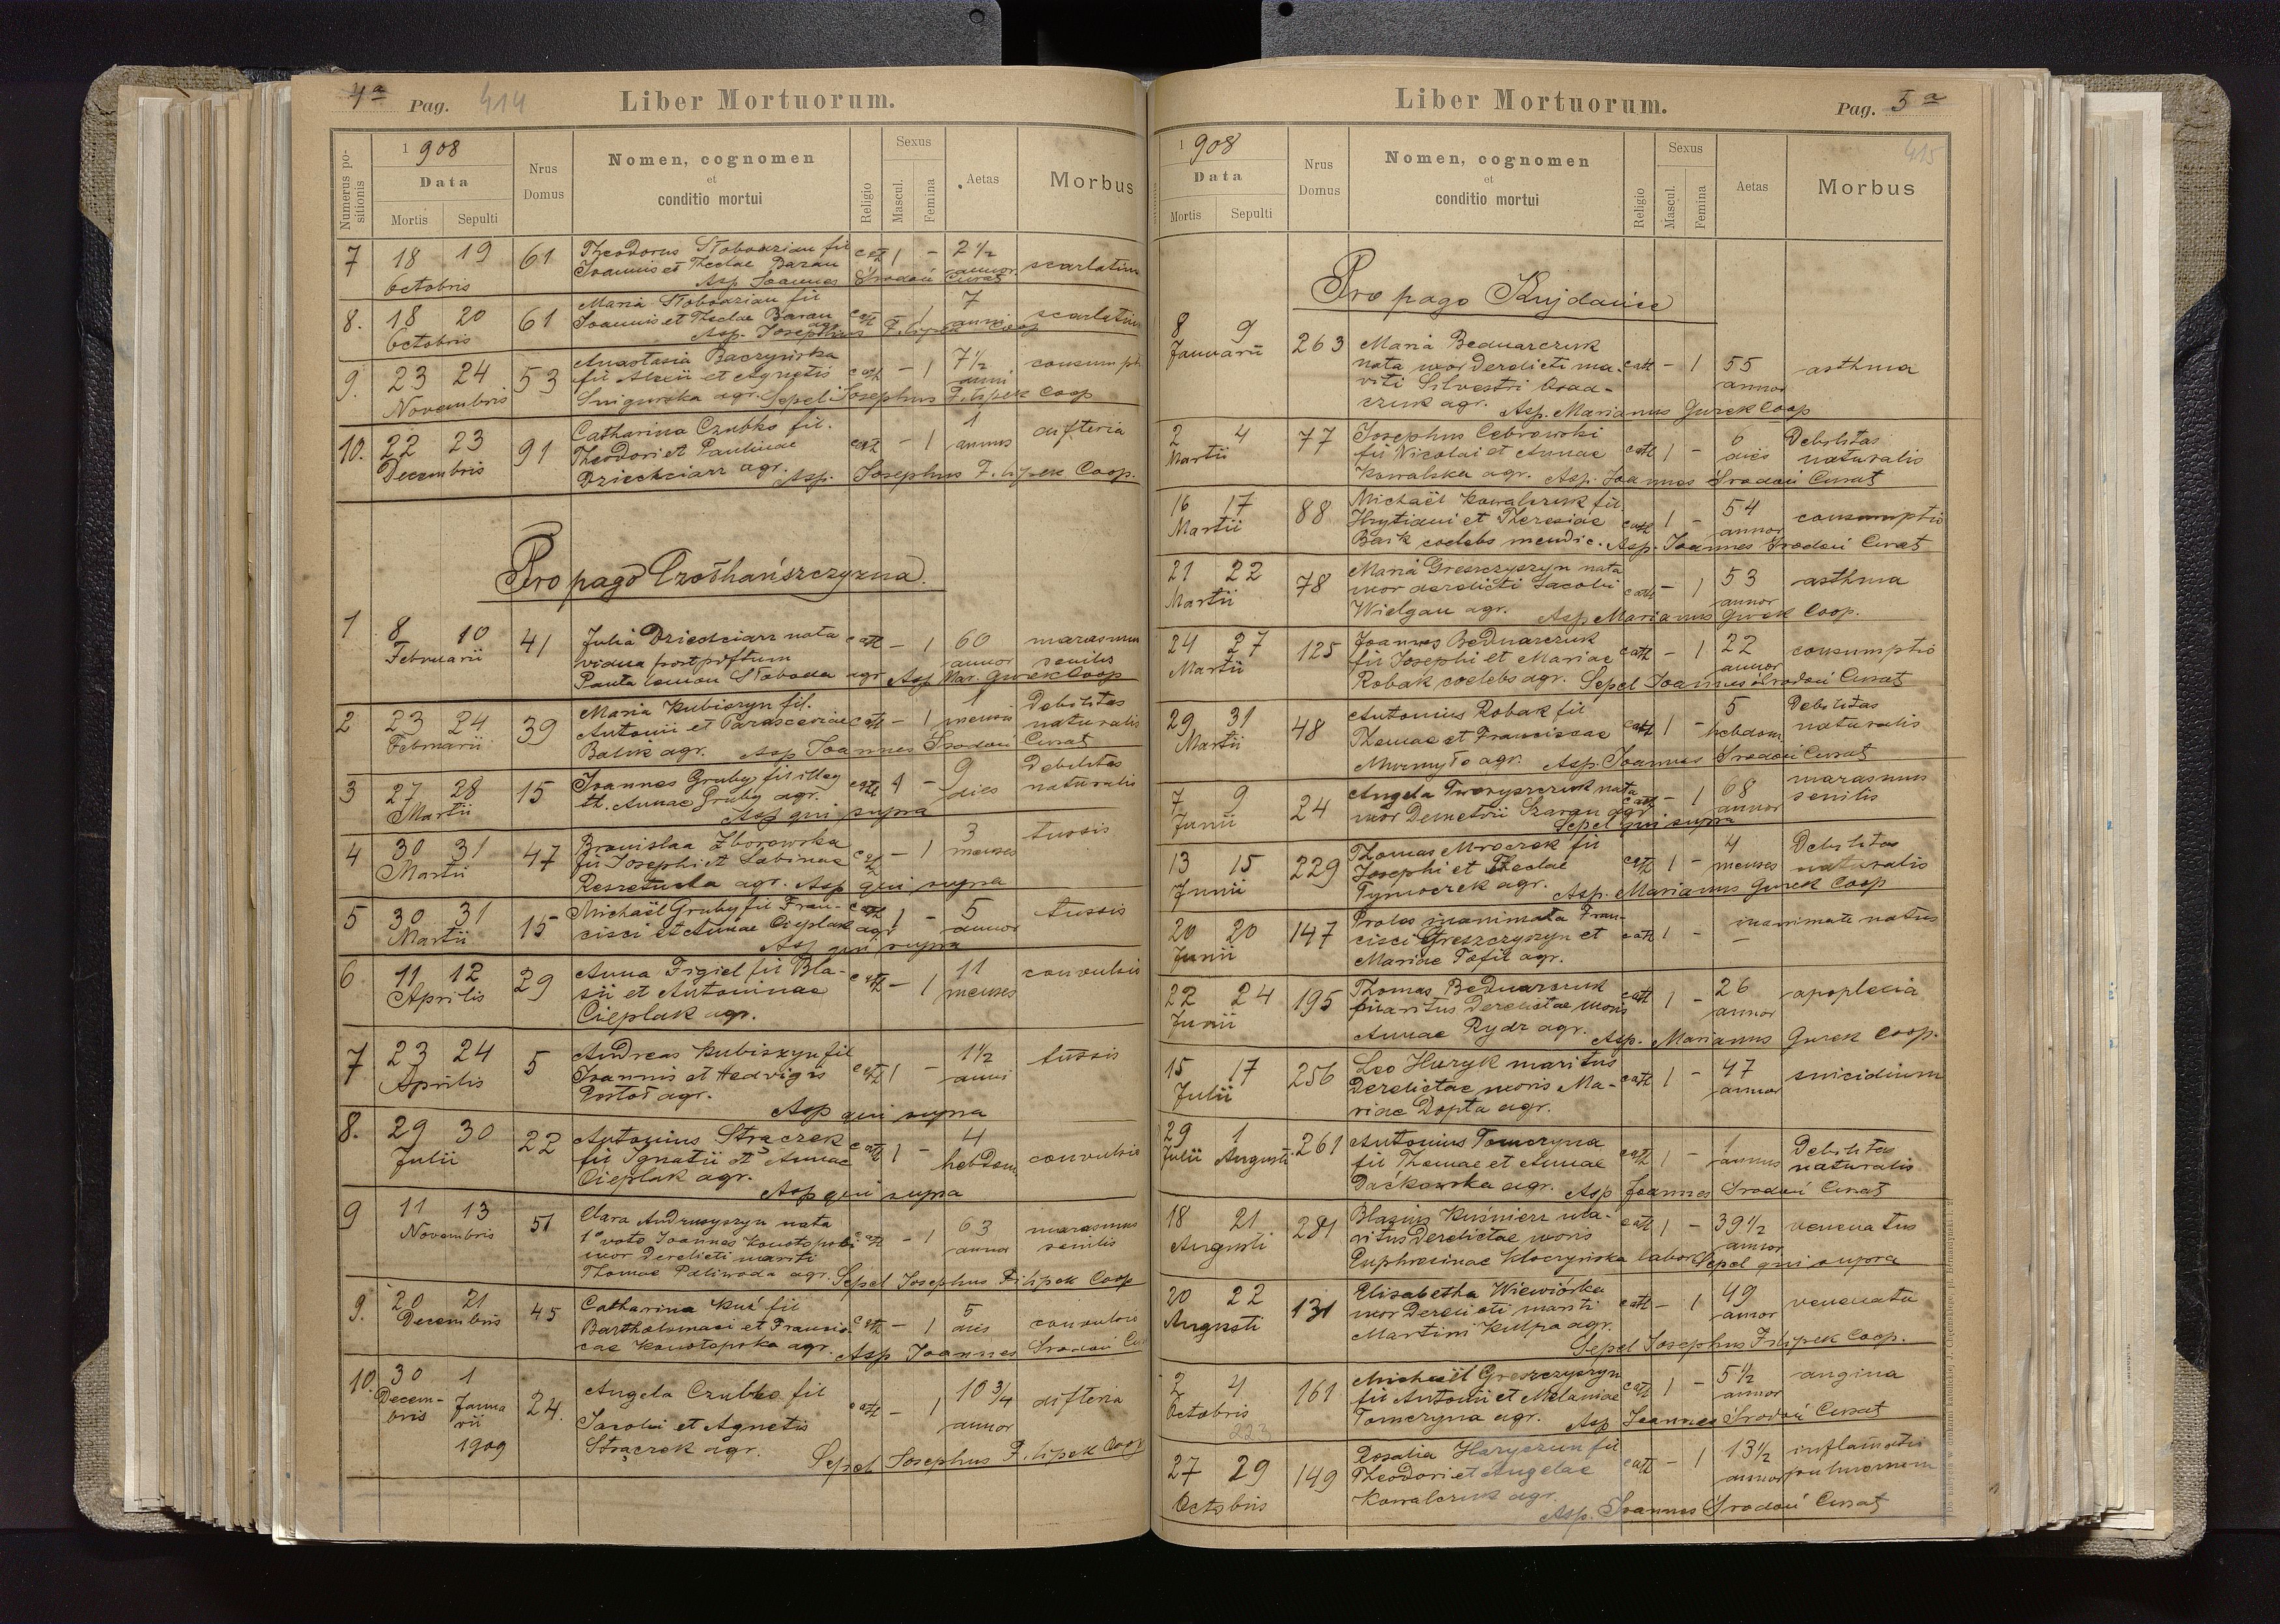 4a Pag. 414 Liber Mortuorum.
Numerus positionis
1908
Data
Mortis Sepulti
Nrus Domus
Nomen, cognomen
et
conditio mortui
Religio
Sexus
Mascul. Femina
Aetas
Morbus
7 18 19 61 Theodorus Słobodzian fil cath 1 - 2 1/2 scarlatina
Octobris Joannis et Theclae Baran annor
Asp Joannes Środoń Curat
8. 18 20 61 Maria Słobodzian fil cath - 1 7 scarlatina
Octobris Joannis et Theclae Baran agr. anni
Asp. Josephus Filipek Coop
9. 23 24 53 Anastasia Baczyńska cath - 1 7 1/2 consumptio
Novembris fil Alexii et Agnetis anni
Snigurska agr. Sepel Josephus Filipek Coop
10. 22 23 91 Catharina Czubko fil. cath - 1 1 difteria
Decembris Theodori et Paulinae annus
Dziechciarz agr. Asp. Josephus Filipek Coop.
Pro pago Trościańszczyzna.
1 8 10 41 Julia Dziechciarz nata cath - 1 60 marasmus
Februarii vidua post pdftum annor senilis
Pantalemon Słoboda agr Asp Mar. Gurek Coop
2 23 24 39 Maria Kubiszyn fil. cath - 1 1 Debilitas
Februarii Antonii et Parasceviae mensis naturalis
Baluk agr. Asp Joannes Środoń Curat
3 27 28 15 Joannes Gruby fil illeg cath 1 - 9 Debilitas
Martii et. Annae Gruby agr. dies naturalis
Asp qui supra
4 30 31 47 Bronislaa Zborowska cath - 1 3 tussis
Martii fil Josephi et Sabinae menses
Reszetucha agr. Asp qui supra
5 30 31 15 Michaël Gruby fil Fran- cath 1 - 5 tussis
Martii cisci et Annae Cieplak agr annor
Asp qui supra
6 11 12 29 Anna Figiel fil Bla- cath - 1 11 convulsio
Aprilis sii et Antoninae menses
Cieplak agr.
7 23 24 5 Andreas Kubiszyn fil cath 1 - 1 1/2 tussis
Aprilis Joannis et Hedvigis anni
Portoł agr.
Asp qui supra
8. 29 30 22 Antonius Strączek cath 1 - 4 convulsio
Julii fil Ignatii et Annae hebdom
Cieplak agr.
Asp qui supra
9 11 13 51 Clara Andrusyszyn nata cath - 1 63 marasmus
Novembris 1o voto Joannes Konotopski annor senilis
uxor Derelicti mariti
Thomae Paliwoda agr. Sepel Josephus Filipek Coop
9. 20 21 45 Catharina Kuś fil cath - 1 5 convulsio
Decembris Bartholomaei et Francis- dies
cae Konotopska agr. Asp Joannes Środoń
10. 30 1 24. Angela Czubko fil cath - 1 10 3/4 difteria
Decem- Janua Jacobi et Agnetis annor
bris rii Strączek agr.
1909 Sepel Josephus Filipek Coop
Liber Mortuorum. Pag. 5a
415
1908
Data
Mortis Sepulti
Nrus Domus
Nomen, cognomen
et
conditio mortui
Religio
Sexus
Mascul. Femina
Aetas
Morbus
Pro pago Kujdańce
8 9 263 Maria Bednarczuk
Januarii nata uxor Derelicti ma- cath - 1 55 asthma
riti Silvestri Osad- annor
czuk agr. Asp. Marianus Gurek Coop
2 4 77 Josephus Cebrowski cath 1 - 6 Debilitas
Martii fil Nicolai et Annae dies naturalis
Kowalska agr. Asp. Joannes Środoń Curat
16 17 88 Michaël Kowalczuk fil. cath 1 - 54 consumptio
Martii Hrytiani et Theresiae annor
Baik coelebs mendic. Asp. Joannes Środoń Curat
21 22 78 Maria Greszczyszyn nata cath - 1 53 asthma
Martii uxor derelicti Jacobi annor
Wielgan agr. Asp Marianus Gurek Coop.
24 27 125 Joannes Bednarczuk cath - 1 22 consumptio
Martii fil Josephi et Mariae annor
Robak coelebs agr. Sepel Joannes Środoń Curat
29 31 48 Antonius Robak fil cath 1 - 5 Debilitas
Martii Thomae et Franciscae hebdom naturalis
Murmyło agr. Asp. Joannes Środoń Curat
7 9 24 Angela nata cath - 1 68 marasmus
Junii uxor Demetrii Szaran agr annor senilis
Sepel qui supra
13 15 229 Thomas Mroczek fil cath 1 - 4 Debilitas
Junii Josephi et Theclae menses naturalis
Tymoczek agr. Asp. Marianus Gurek Coop
20 20 147 Proles inanimata Fran- cath 1 - - inanimate natus
Junii cisci Greszczyszyn et
Mariae Tofil agr.
22 24 195 Thomas Bednarczuk cath 1 - 26 apoplexia
Junii maritus Derelictae uxoris annor
Annae Rydz agr. Asp. Marianus Gurek Coop.
15 17 256 Leo Huryk maritus cath 1 - 47 suicidium
Julii Derelictae uxoris Ma- annor
riae Dopta agr.
29 1 261 Antonius Tomczyna cath 1 - 1 Debilitas
Julii Augusti fil Thomae et Annae annus naturalis
Daćkowska agr. Asp Joannes Środoń Curat
18 21 281 Blasius Kuśnierz ma- cath 1 - 39 1/2 venenatus
Augusti ritus Derelictae uxoris annor
Euphrosinae Kłoczyńska labor Sepel qui supra
20 22 131 Elisabetha Wiewiórka cath - 1 49 venenata
Augusti uxor Derelicti mariti annor
Martini Kulpa agr.
Sepel Josephus Filipek Coop.
2 4 161 Michaël Greszczyszyn cath 1 - 5 1/2 angina
Octobris fil Antonii et Melaniae annor
223 Tomczyna agr. Asp Joannes Środoń Curat
27 29 149 Rosalia Haryczun fil cath - 1 13 1/2 inflamatio
Octobris Theodori et Angelae annor pulmonum
Kowalczuk agr.
Asp. Joannes Środoń Curat